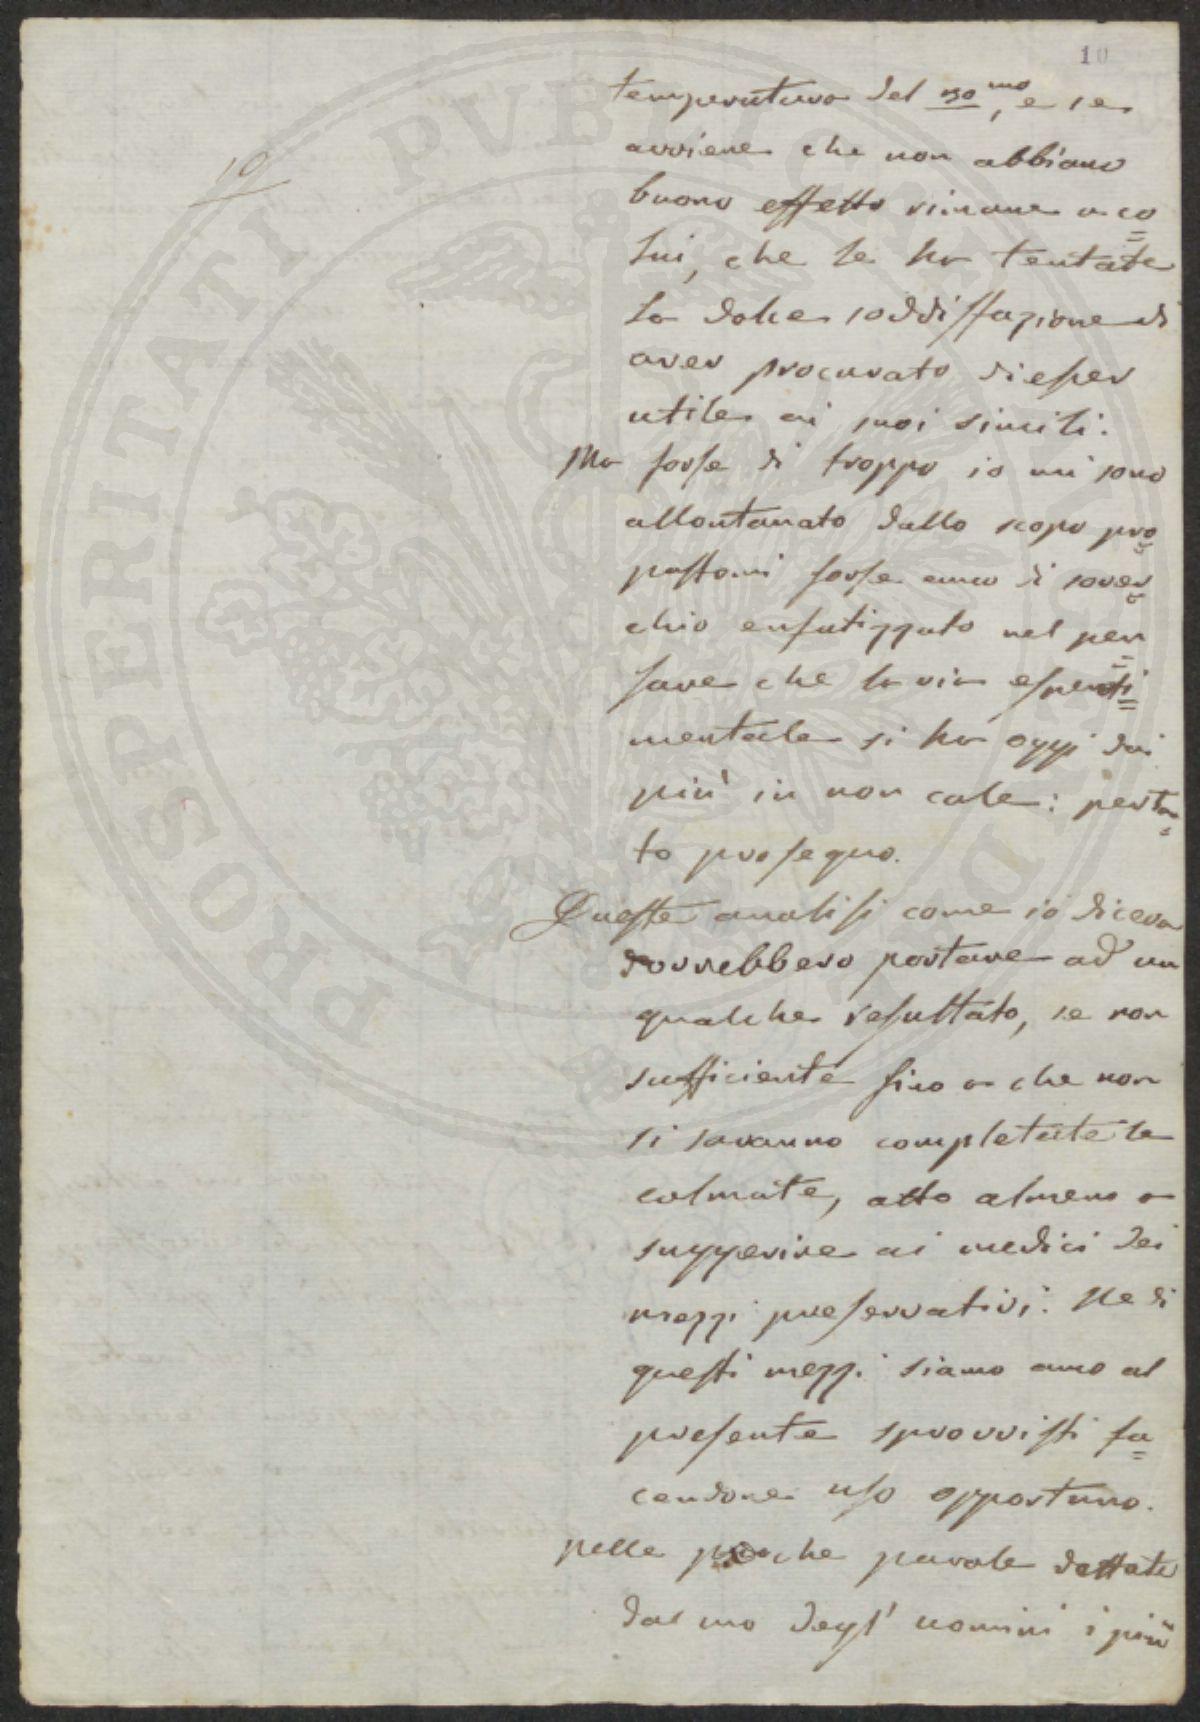 10
10
temperatura del 130.mo, e se
avviene che non abbiano
buono effetto rimane a co
lui, che le ha tentate
la dolce soddisfazione di
aver procurato di esser
utile ai suoi simili.
Ma forse di troppo io mi sono
allontanato dallo scopo pro
postomi forse anco di sover
chio enfatizzato nel pen
sare che la via esperi
mentale si ha oggi dai
più in non cale: perta
to proseguo.
Queste analisi come io diceva
dovrebbero portare ad un
qualche resultato, se non
sufficiente fino a che non
si saranno completate le
colmate, atto almeno a
suggerire ai medici dei
mezzi preservativi. Ne di
questi mezzi siamo anco al
presente sprovvisti fa
cendone uso opportuno.
Nelle poche parole dettate
dal mo degl' uomini i più
PROSPERITATI PVBLICAE AVGENDAE